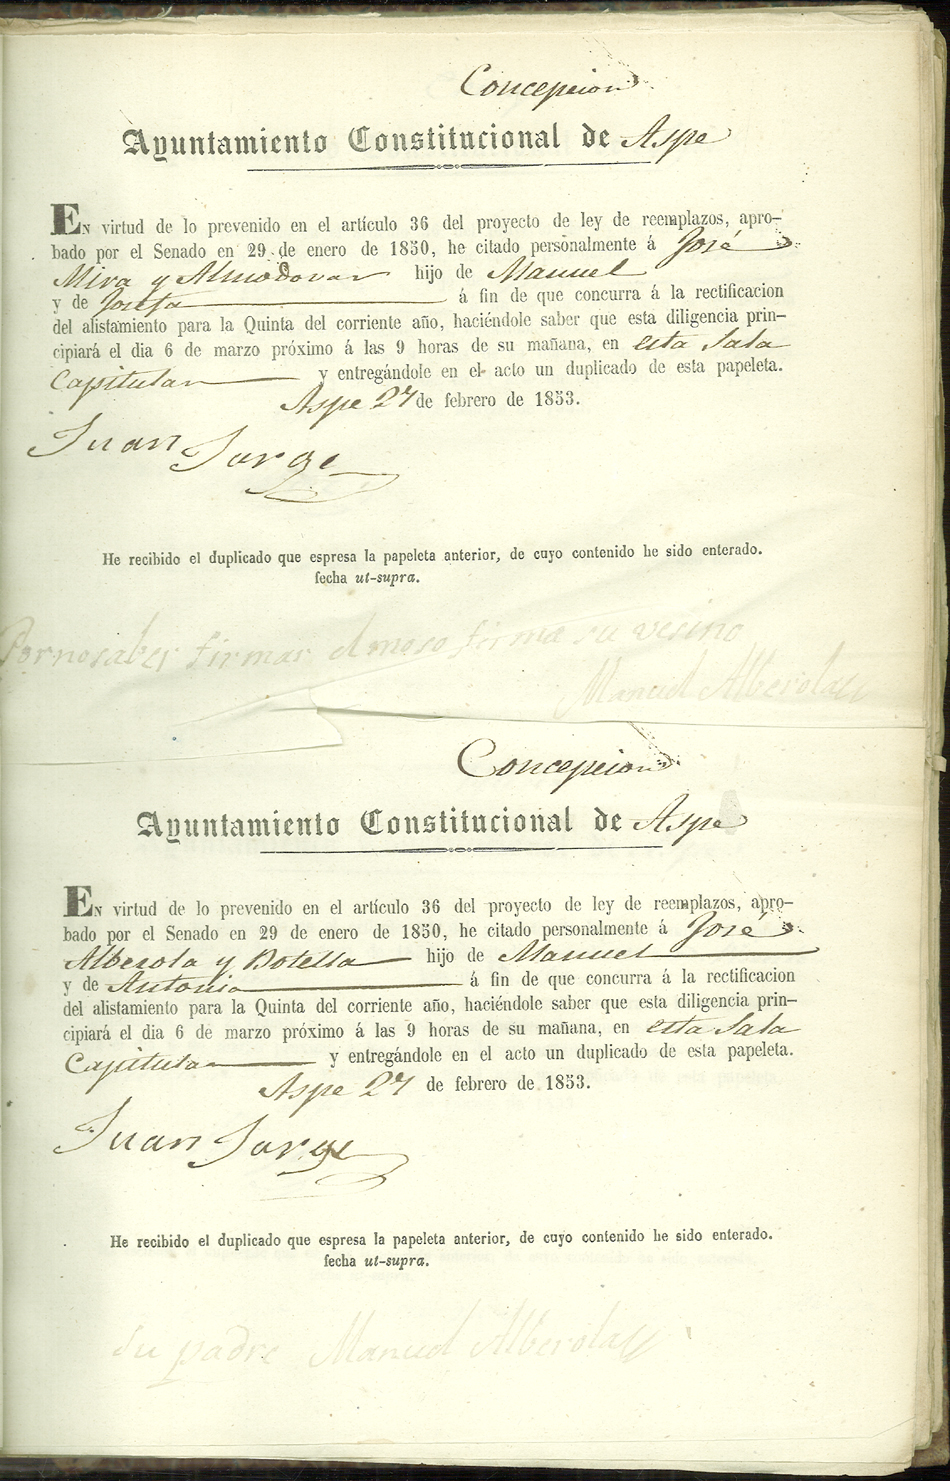 Concepcion
Ayuntamiento Constitucional de Aspe
En virtud de lo prevenido en el artículo 36 del proyecto de ley de reemplazos, apro-
bado por el Senado en 29 de enero de 1850, he citado personalmente á José
Mira y Almodovar hijo de Manuel
y de Josefa á fin de que concurra á la rectificacion
del alistamiento para la Quinta del corriente año, haciéndole saber que esta diligencia prin-
cipiará el dia 6 de marzo próximo á las 9 horas de su mañana, en esta Sala
Capitular y entregándole en el acto un duplicado de esta papeleta.
Aspe 27 de febrero de 1853.
Juan Jorge
He recibido el duplicado que espresa la papeleta anterior, de cuyo contenido he sido enterado.
fecha ut-supra.
Por no saber firmar el moso firma su vesino
Manuel Alberola
Concepcion
Ayuntamiento Constitucional de Aspe
En virtud de lo prevenido en el artículo 36 del proyecto de ley de reemplazos, apro-
bado por el Senado en 29 de enero de 1850, he citado personalmente á José
Alberola y Botella hijo de Manuel
y de Antonia á fin de que concurra á la rectificacion
del alistamiento para la Quinta del corriente año, haciéndole saber que esta diligencia prin-
cipiará el dia 6 de marzo próximo á las 9 horas de su mañana, en esta Sala
Capitular y entregándole en el acto un duplicado de esta papeleta.
Aspe 27 de febrero de 1853.
Juan Jorge
He recibido el duplicado que espresa la papeleta anterior, de cuyo contenido he sido enterado.
fecha ut-supra.
su padre Manuel Alberola